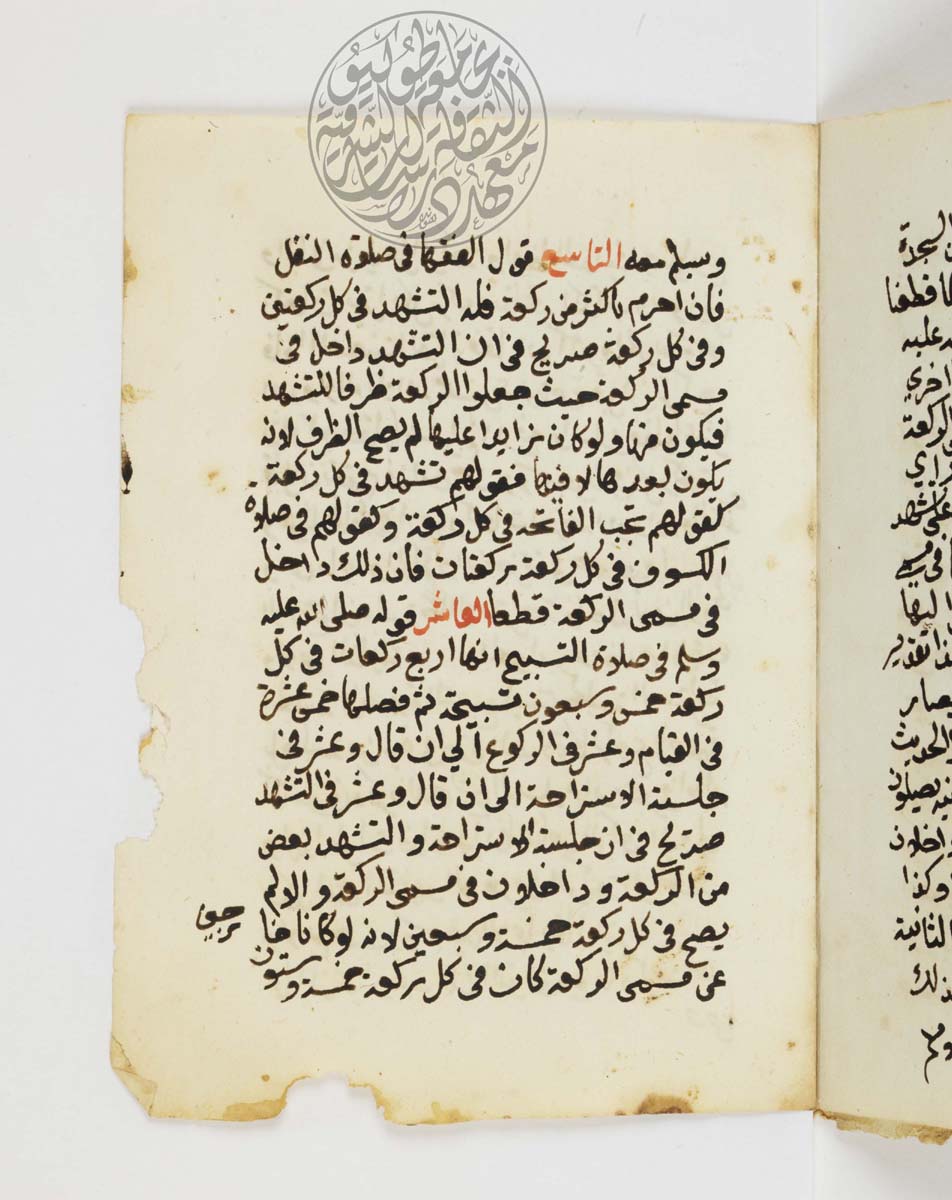 وسلم معه التاسع قول الفقها في صلاة النفل
فان احرم باكثر من ركعة فله التشهد في كل ركعتين
وفي كل ركعة صريح في ان التشهد داخل في
مسمى الركعة حيث جعلوا الركعة ظرفا للتشهد
فيكون منها ولو كان زايدا عليها لم يصح الظرف لانه
يكون بعدها لا فيها فقولهم تشهد في كل ركعة
كقولهم تجب الفاتحه في كل ركعة وكقولهم في صلاة
الكسوف في كل ركعة ركعتان فان ذلك داخل
في مسمى الركعة قطعا العاشر قوله صلى الله عليه
وسلم في صلاة التسبيح انها اربع ركعات في كل
ركعة خمس وسبعون تسبيحة ثم فصلها خمس عشرة
في القيام وعشر في الركوع الي ان قال وعشر في
جلسة الاستراحة الى ان قال وعشر في التشهد
صريح في ان جلسة الاستراحة والتشهد بعض
من الركعة وداخلان في مسمى الركعة والا لم
يصح في كل ركعة خمسة وسبعين لانه لو كانا خا
رجين
عن مسمى الركعة كان في كل ركعة خمسة وستون
معهد الثقافة والدراسات الشرقية
جامعة طوكيو
السجدة
قطعا
عليه
اخري
الركعة
التشهد
في
اليها
تقدير
والحديث
يصلون
داخلان
وكذا
الثانية
ذلك